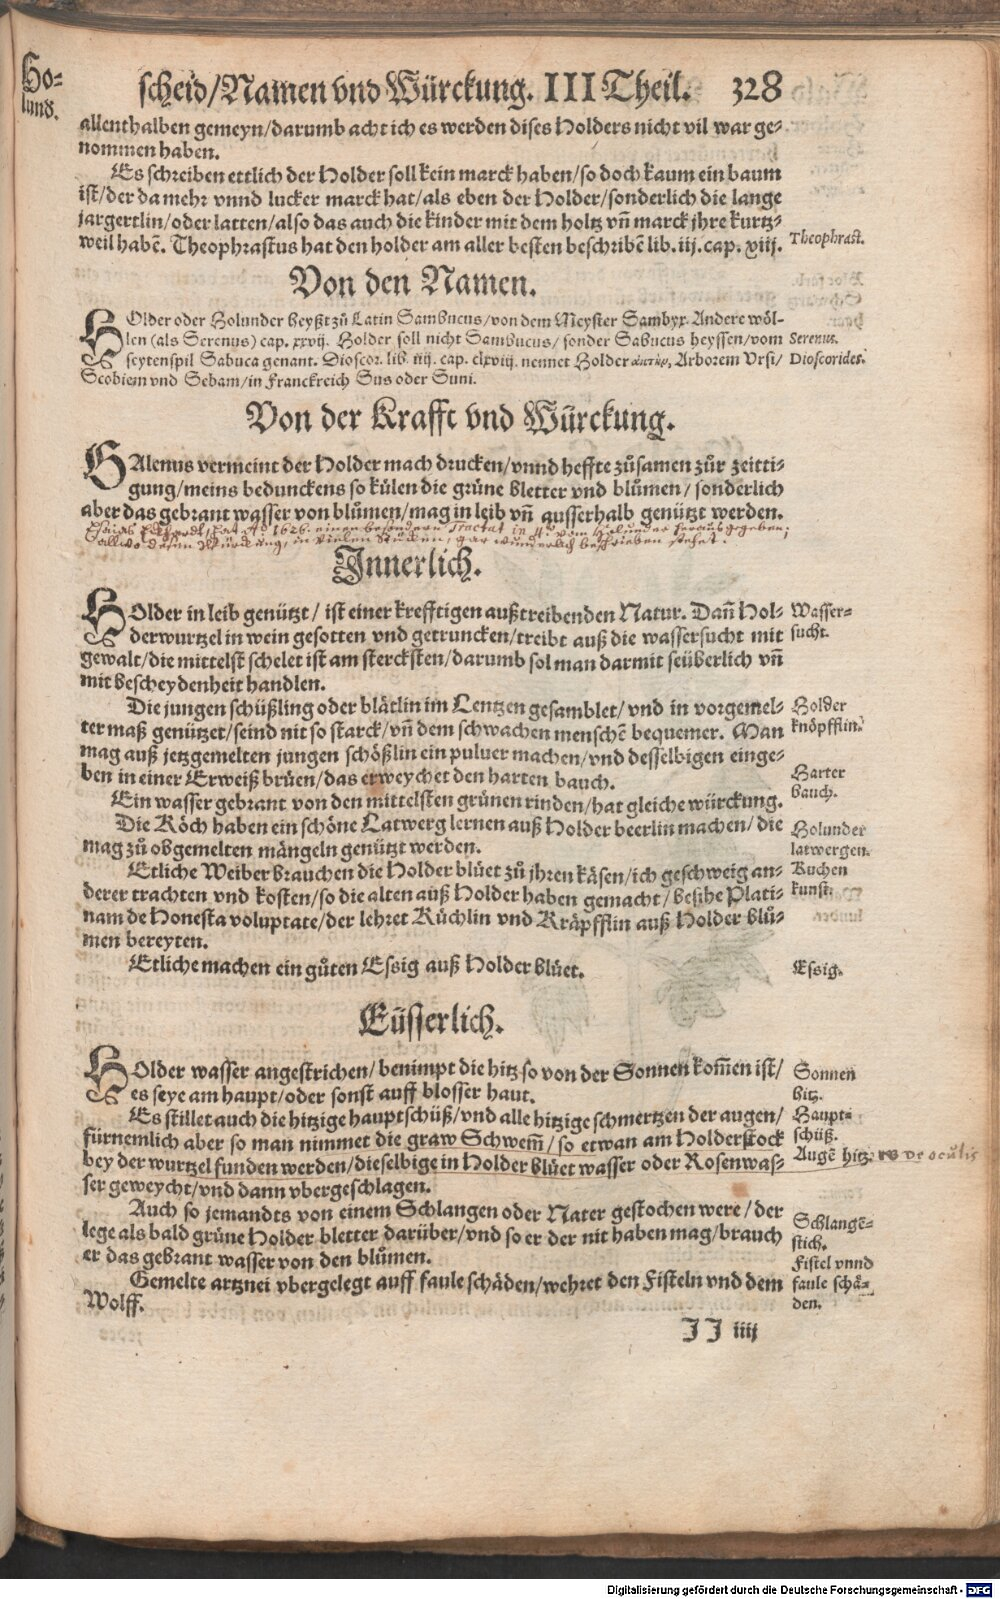 Ho-
lund.
scheid/Namen vnd Würckung. III Theil. 328
allenthalben gemeyn/darumb acht ich es werden dises Holders nicht vil war ge-
nommen haben.
Es schreiben ettlich der Holder soll kein marck haben/so doch kaum ein baum
ist/der da mehr vnnd lucker marck hat/als eben der Holder/sonderlich die lange
jargertlin/oder latten/also das auch die kinder mit dem holtz vñ marck jhre kurtz-
weil habē. Theophrastus hat den holder am aller besten beschribē lib. iij. cap. xiij.
Theophrast.
Von den Namen.
HOlder oder Holunder heyßt zů Latin Sambucus/von dem Meyster Sambyx. Andere wöl-
len (als Serenus) cap. xxvij. Holder soll nicht Sambucus/ sonder Sabucus heyssen/vom
Serenus.
seytenspil Sabuca genant. Dioscor. lib. iiij. cap. clxviij. nennet Holder ἀκτὴρ, Arborem Vrsi/
Dioscorides.
Scobiem vnd Sebam/in Franckreich Sus oder Suni.
Von der Krafft vnd Würckung.
GAlenus vermeint der Holder mach drucken/vnnd heffte zůsamen zůr zeitti-
gung/meins bedunckens so külen die grüne bletter vnd blůmen/ sonderlich
aber das gebrant wasser von blůmen/mag in leib vñ ausserhalb genützt werden.
hat Aº 1626. einen besondern Tractat in 4º vom Holunder heraus gegeben;
allwo dessen Würckung, in vielen Stücken, gar wunderlich beschrieben stehet.
Innerlich.
HOlder in leib genützt/ ist einer krefftigen außtreibenden Natur. Dañ Hol-
Wasser-
derwurtzel in wein gesotten vnd getruncken/treibt auß die wassersucht mit
sucht.
gewalt/die mittelst schelet ist am stercksten/darumb sol man darmit seüberlich vñ
mit bescheydenheit handlen.
Die jungen schüßling oder blätlin im Lentzen gesamblet/ vnd in vorgemel-
Holder
ter maß genützet/seind nit so starck/vñ dem schwachen menschē bequemer. Man
knöpfflin.
mag auß jetzgemelten jungen schößlin ein puluer machen/vnd desselbigen einge-
ben in einer Erweiß brüen/das erweychet den harten bauch.
Harter
bauch.
Ein wasser gebrant von den mittelsten grünen rinden/hat gleiche würckung.
Die Köch haben ein schöne Latwerg lernen auß Holder beerlin machen/ die
Holunder
mag zů obgemelten mängeln genützt werden.
latwergen.
Etliche Weiber brauchen die Holder blüet zů jhren käsen/ich geschweig an-
Kuchen
derer trachten vnd kosten/so die alten auß Holder haben gemacht/besihe Plati-
kunst.
nam de Honesta voluptate/der lehret Küchlin vnd Kräpfflin auß Holder blů-
men bereyten.
Etliche machen ein gůten Essig auß Holder blüet.
Essig.
Eüsserlich.
HOlder wasser angestrichen/benimpt die hitz so von der Sonnen kom̄en ist/
Sonnen
es seye am haupt/oder sonst auff blosser haut.
hitz.
Es stillet auch die hitzige hauptschüß/vnd alle hitzige schmertzen der augen/
Haupt-
fürnemlich aber so man nimmet die graw Schwem̄/so etwan am Holderstock
schüß.
bey der wurtzel funden werden/dieselbige in Holder blüet wasser oder Rosenwas-
Augē hitz.
ser geweycht/vnd dann vbergeschlagen.
Auch so jemandts von einem Schlangen oder Nater gestochen were/ der
Schlangē-
lege als bald grüne Holder bletter darüber/vnd so er der nit haben mag/brauch
stich.
er das gebrant wasser von den blůmen.
Fistel vnnd
Gemelte artznei vbergelegt auff faule schäden/wehret den Fisteln vnd dem
faule schä-
Wolff.
den.
JJ iiij
Digitalisierung gefördert durch die Deutsche Forschungsgemeinschaft - DFG